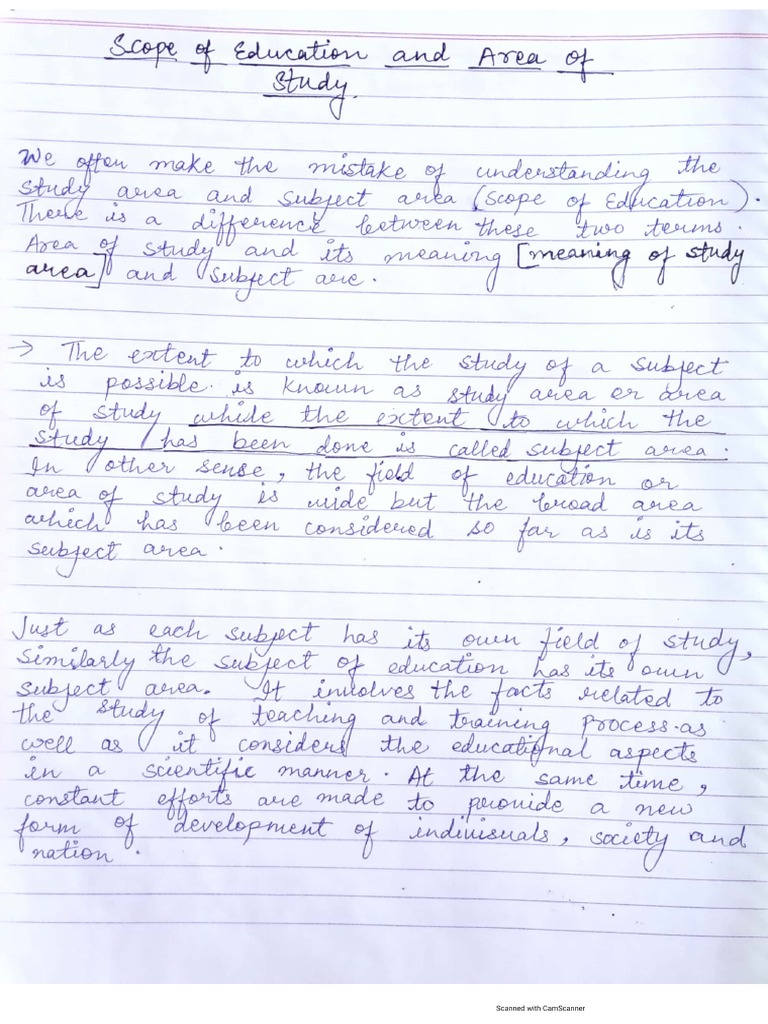 Scope of Education and Area of
Study.
We often make the mistake of understanding the
study area and subject area (Scope of Education).
There is a difference between these two terms.
Area of study and its meaning [meaning of study
area] and subject are.
→ The extent to which the study of a subject
is possible. is known as study area or area
of study while the extent to which the
study has been done is called subject area.
In other sense, the field of education or
area of study is wide but the broad area
which has been considered so far as is its
subject area.
Just as each subject has its own field of study,
similarly the subject of education has its own
subject area. It involves the facts related to
the study of teaching and training process as
well as it considers the educational aspects
in a scientific manner. At the same time,
constant efforts are made to provide a new
form of development of indivisuals, society and
nation.
Scanned with CamScanner